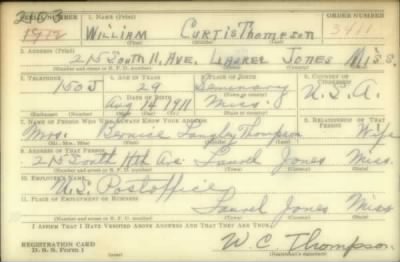 SERIAL NUMBER 1. NAME (Print) ORDER NUMBER
1912 WILLIAM CURTIS THOMPSON 3411
(First) (Middle) (Last)
2. ADDRESS (Print)
215 SOUTH 11, AVE. LAUREL JONES MISS.
(Number and street or R. F. D. number) (Town) (County) (State)
3. TELEPHONE 4. AGE IN YEARS 5. PLACE OF BIRTH 6. COUNTRY OF CITIZENSHIP
1503 29 Seminary
DATE OF BIRTH Miss. U.S.A.
Aug 14 1911
(Mo.) (Day) (Yr.) (State or country)
7. NAME OF PERSON WHO WILL ALWAYS KNOW YOUR ADDRESS 8. RELATIONSHIP OF THAT PERSON
Mrs. Bernice Langley Thompson Wife
(Mr., Mrs., Miss) (First) (Middle) (Last)
9. ADDRESS OF THAT PERSON
215 South 11th Ave Laurel Jones Miss.
(Number and street or R. F. D. number) (Town) (County) (State)
10. EMPLOYER'S NAME
U.S. Postoffice
11. PLACE OF EMPLOYMENT OR BUSINESS
Laurel Jones Miss
(Number and street or R. F. D. number) (Town) (County) (State)
I AFFIRM THAT I HAVE VERIFIED ABOVE ANSWERS AND THAT THEY ARE TRUE.
REGISTRATION CARD
D. S. S. Form 1 W. C. Thompson